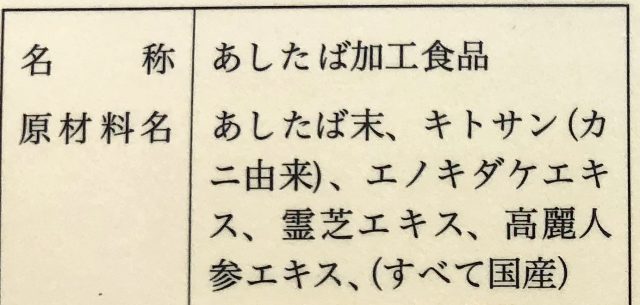 名称 あしたば加工食品
原材料名 あしたば末、キトサン(カ
ニ由来)、エノキダケエキ
ス、霊芝エキス、高麗人
参エキス、(すべて国産)